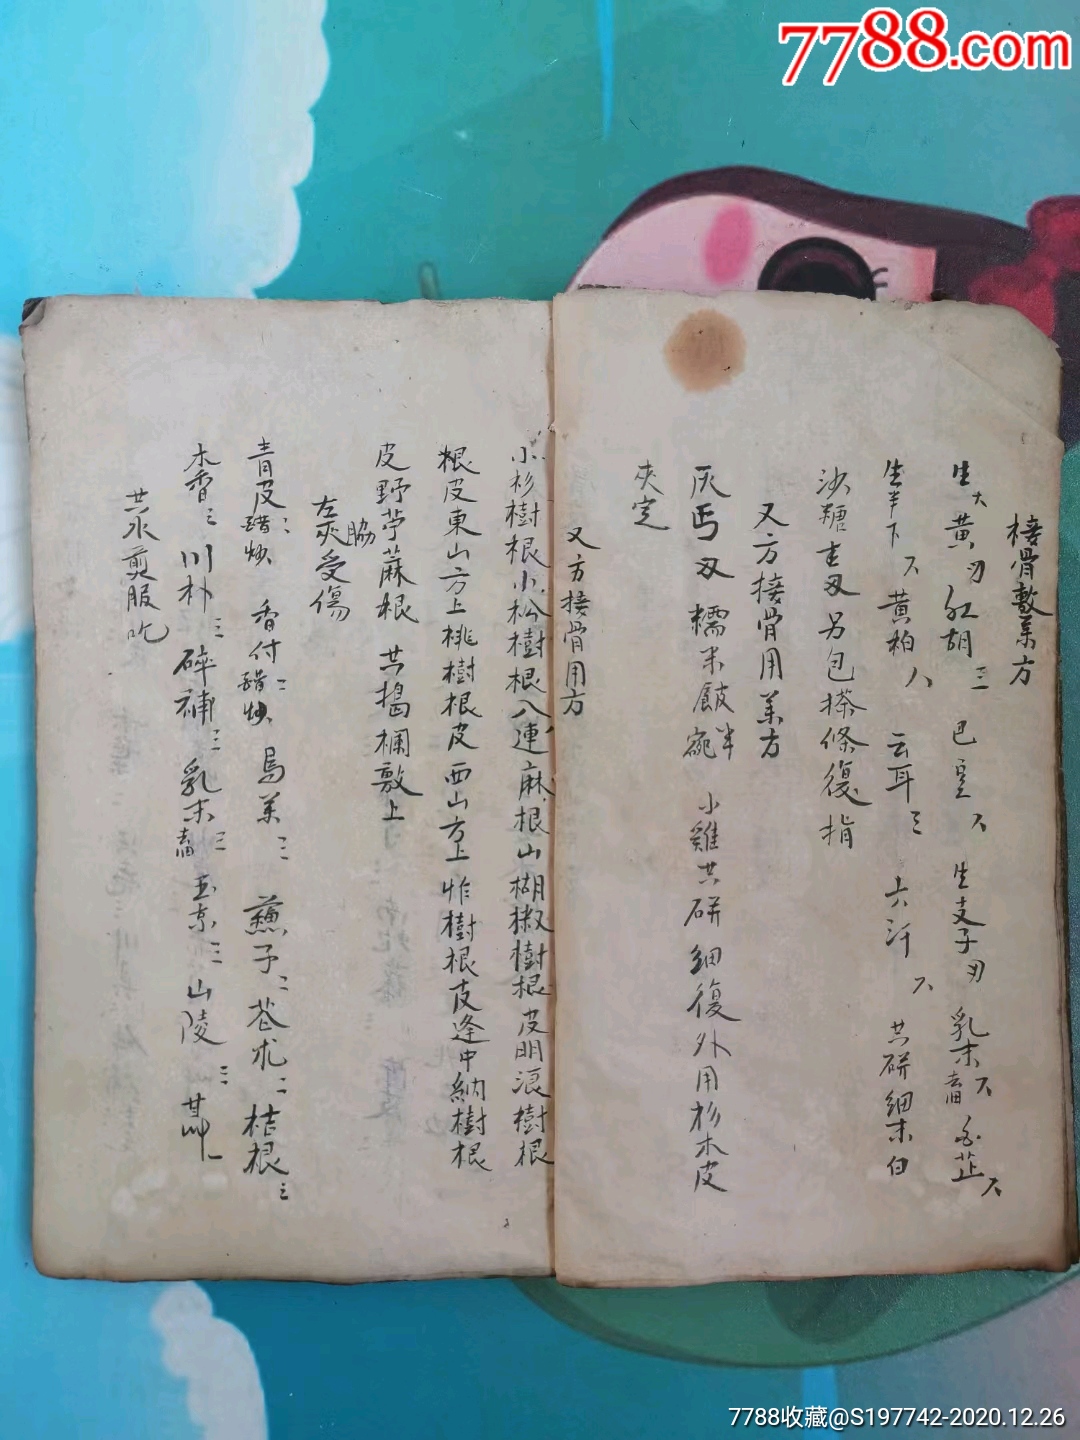 7788.com
接骨敷药方
生大黄 红胡三 巴豆 生支子 乳末 白芷
生半下 黄柏 云耳三 六汗 共研細末白
沙糖 另包搽條復指
又方接骨用药方
灰丐 糯米飯半碗 小雞共研細復外用杉木皮
夾定
又方接骨用方
小杉樹根小松樹根八連麻根山楜椒樹根皮明浪樹根
根皮東山方上桃樹根皮西山方上怍樹根皮逢中納樹根
皮野苧蔴根 共搗欄敷上
左夾脇受傷
青皮醋炒 香付醋炒 烏药 蘇子 苍朮 桔根三
木香三 川朴三 碎補三 乳末三 玉京三 山陵三
共水煎服吃
7788收藏@S197742-2020.12.26